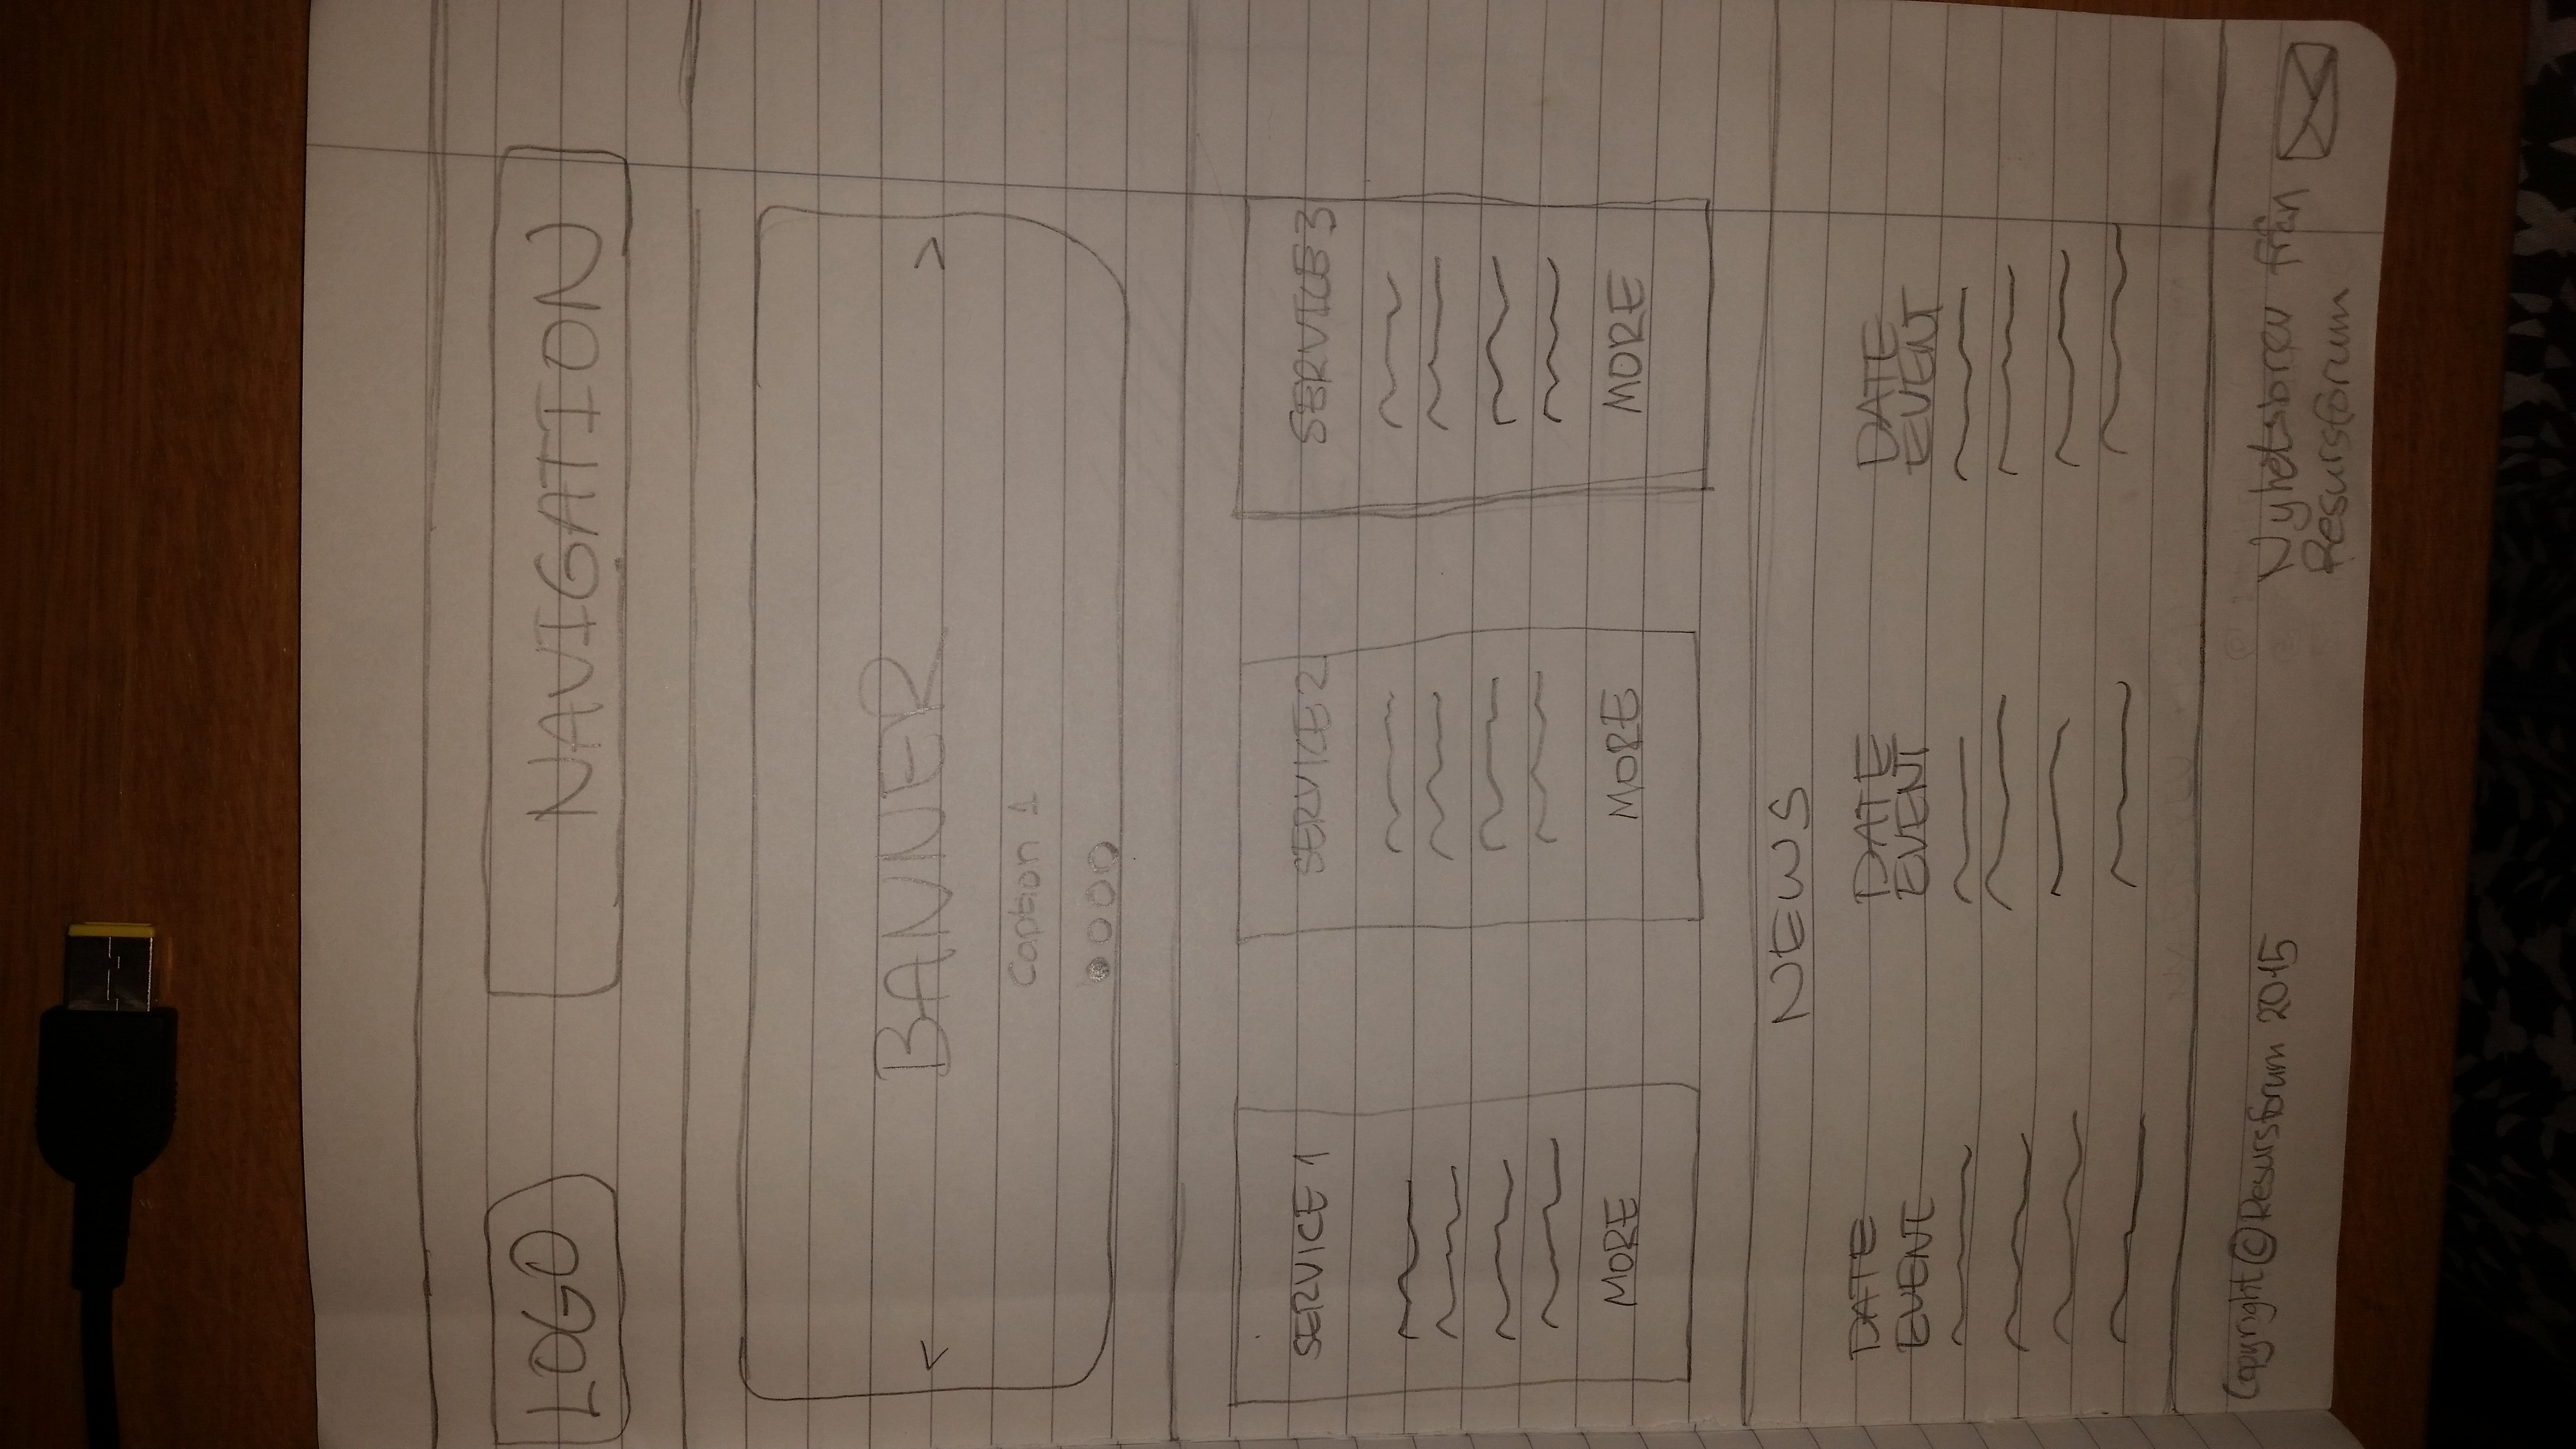 LOGO
NAVIGATION
<
BANNER
>
Caption 1
SERVICE 1
SERVICE 2
SERVICE 3
MORE
MORE
MORE
NEWS
DATE
EVENT
DATE
EVENT
DATE
EVENT
Copyright © Resursforum 2015
Nyhetsbrev från
Resursforum